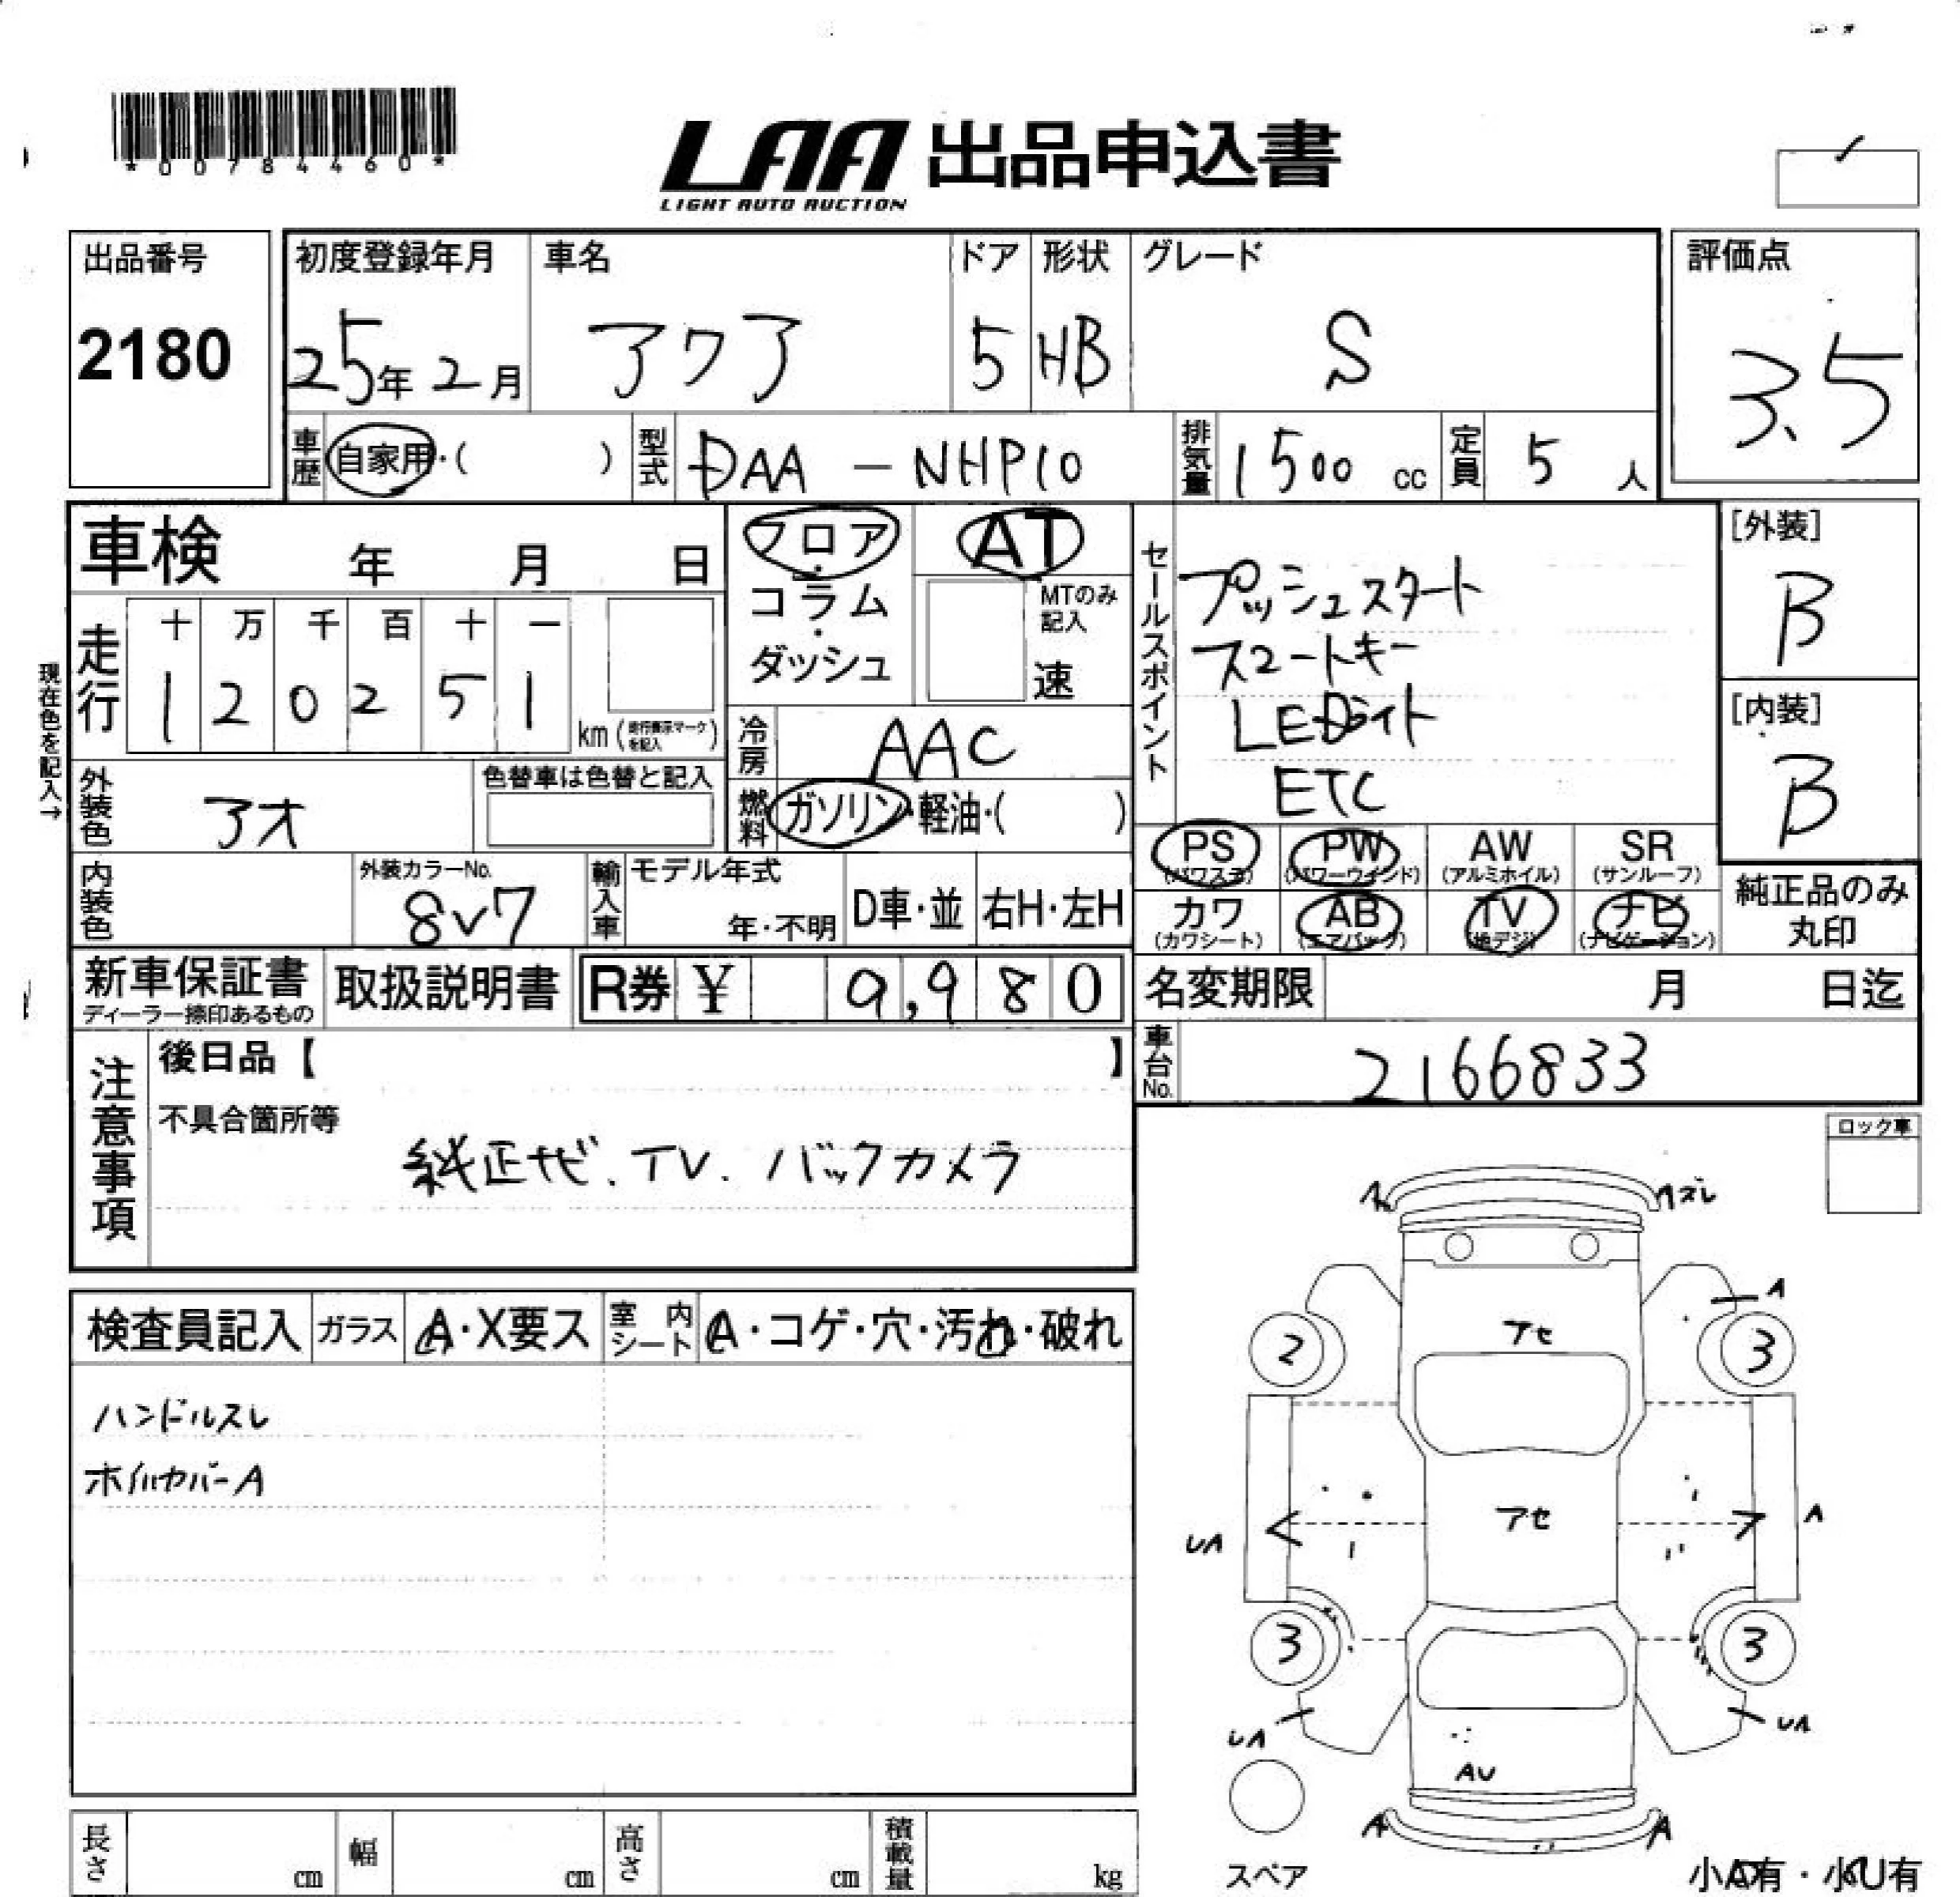 *00784460*
LAA 出品申込書
LIGHT AUTO AUCTION
出品番号
2180
初度登録年月
25年2月
車名
アクア
ドア
5
形状
HB
グレード
S
評価点
3.5
車歴 自家用・( )
型式 DAA - NHP10
排気量 1500 cc
定員 5 人
車検 年 月 日
フロア・コラム・ダッシュ
AT
MTのみ記入
速
セールスポイント
プッシュスタート
スマートキー
LEDライト
ETC
[外装]
B
[内装]
B
現在色を記入→
走行
十 万 千 百 十 一
1 2 0 2 5 1
km (走行表示マークを記入)
冷房 AAC
燃料 ガソリン・軽油・( )
外装色 アオ
色替車は色替と記入
PS (パワステ)
PW (パワーウインド)
AW (アルミホイル)
SR (サンルーフ)
カワ (カワシート)
AB (エアバック)
TV (地デジ)
ナビ (ナビゲーション)
純正品のみ
丸印
内装色
外装カラーNo.
8V7
輸入車
モデル年式
年・不明
D車・並
右H・左H
新車保証書
ディーラー捺印あるもの
取扱説明書
R券 ¥ 9,980
名変期限 月 日迄
車台No. 2166833
注意事項
後日品【 】
不具合箇所等
純正ナビ.TV.バックカメラ
ロック車
検査員記入
ガラス A・X要ス
室内シート A・コゲ・穴・汚れ・破れ
ハンドルスレ
ホイルカバーA
A
Aズレ
A
アセ
2
3
アセ
UA
A
3
3
UA
UA
AU
A
A
スペア
小A有・小U有
長さ cm
幅 cm
高さ cm
積載量 kg